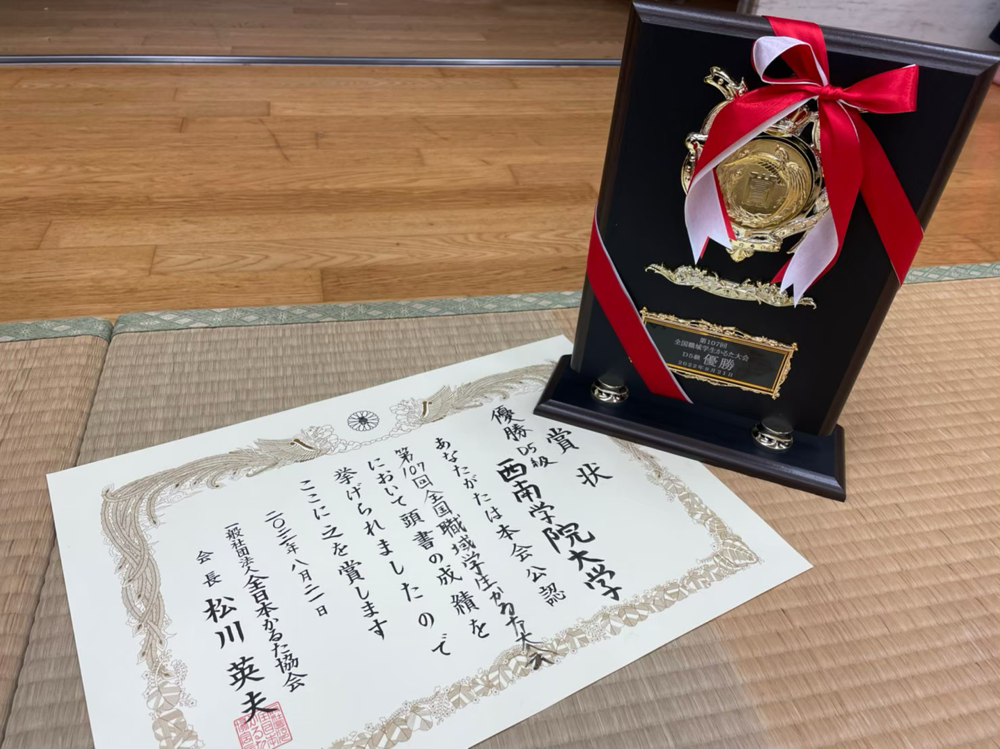 賞状
優勝 D5級
西南学院大学
あなたがたは本会公認
第107回全国職域学生かるた大会
において頭書の成績を
挙げられましたので
ここに之を賞します
二〇二二年八月二一日
一般社団法人全日本かるた協会
会長 松川英夫
賞
第107回
全国職域学生かるた大会
D5級 優勝
2022年8月21日